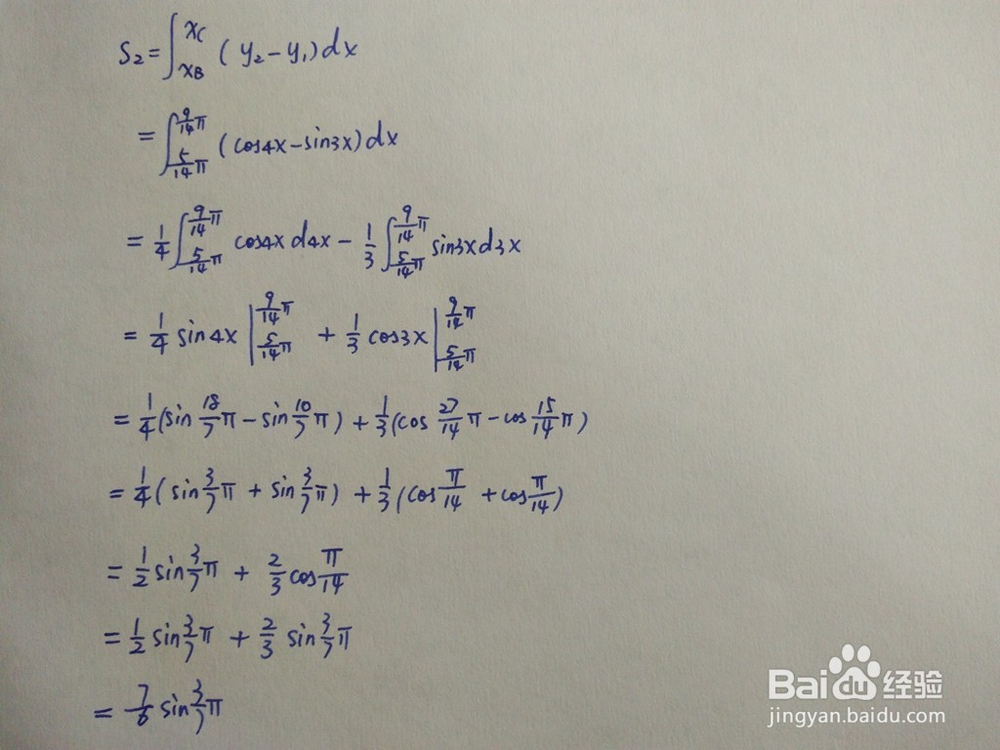 S₂=∫_{x_B}^{x_C} (y₂-y₁)dx
=∫_{5/14 π}^{9/14 π} (cos4x-sin3x)dx
= 1/4 ∫_{5/14 π}^{9/14 π} cos4x d4x - 1/3 ∫_{5/14 π}^{9/14 π} sin3x d3x
= 1/4 sin4x |_{5/14 π}^{9/14 π} + 1/3 cos3x |_{5/14 π}^{9/14 π}
= 1/4 (sin 18/7 π - sin 10/7 π) + 1/3 (cos 27/14 π - cos 15/14 π)
= 1/4 (sin 3/7 π + sin 3/7 π) + 1/3 (cos π/14 + cos π/14)
= 1/2 sin 3/7 π + 2/3 cos π/14
= 1/2 sin 3/7 π + 2/3 sin 3/7 π
= 7/6 sin 3/7 π
Baidu经验
jingyan.baidu.com